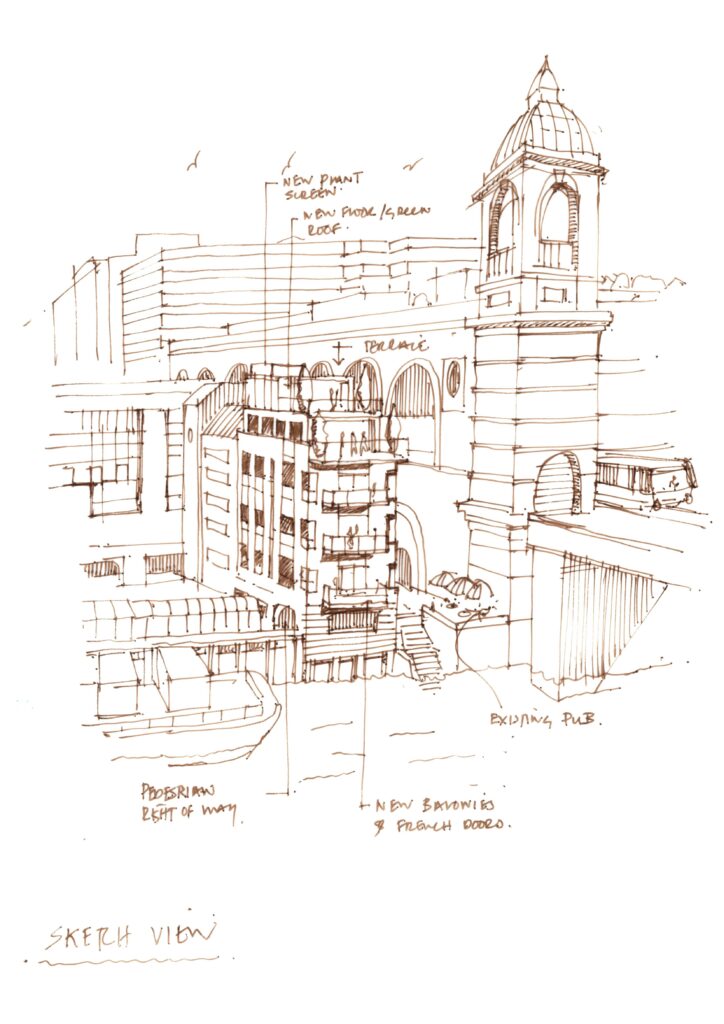 NEW PLANT
SCREEN.
NEW FLOOR/GREEN
ROOF.
TERRACE
EXISTING PUB.
PEDESRIAN
RIGHT OF WAY.
NEW BALCONIES
& FRENCH DOORS.
SKETCH VIEW